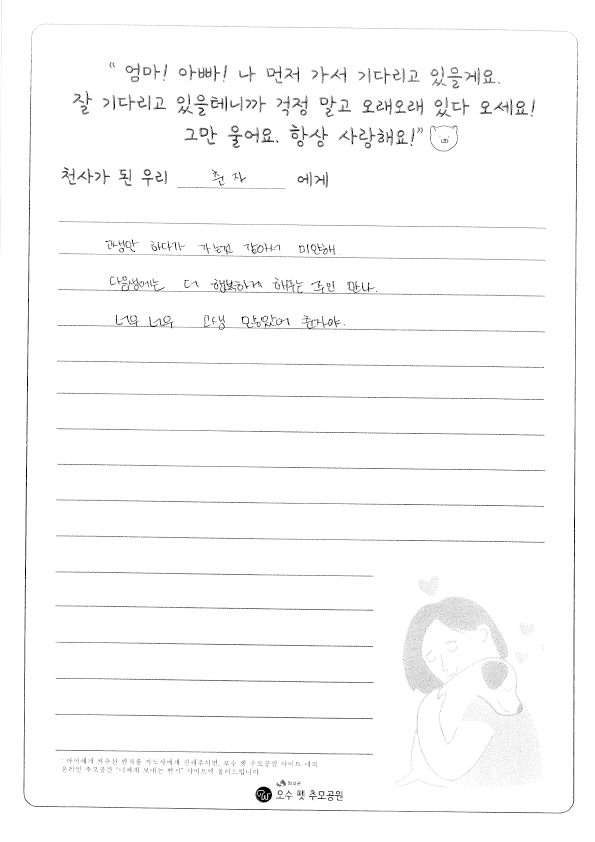 “ 엄마! 아빠! 나 먼저 가서 기다리고 있을게요.
잘 기다리고 있을테니까 걱정 말고 오래오래 있다 오세요!
그만 울어요. 항상 사랑해요!”
천사가 된 우리 춘자 에게
고생만 하다가 가는건 같아서 미안해
다음생에는 더 행복하게 해주는 주인 만나.
너무 너무 고생 많았어 춘자야.
* 아이에게 써주신 편지를 지도사에게 전해주시면, 오수 펫 추모공원 사이트 내의
온라인 추모공간 “너에게 보내는 편지” 사이트에 올려드립니다.
임실군
오수 펫 추모공원